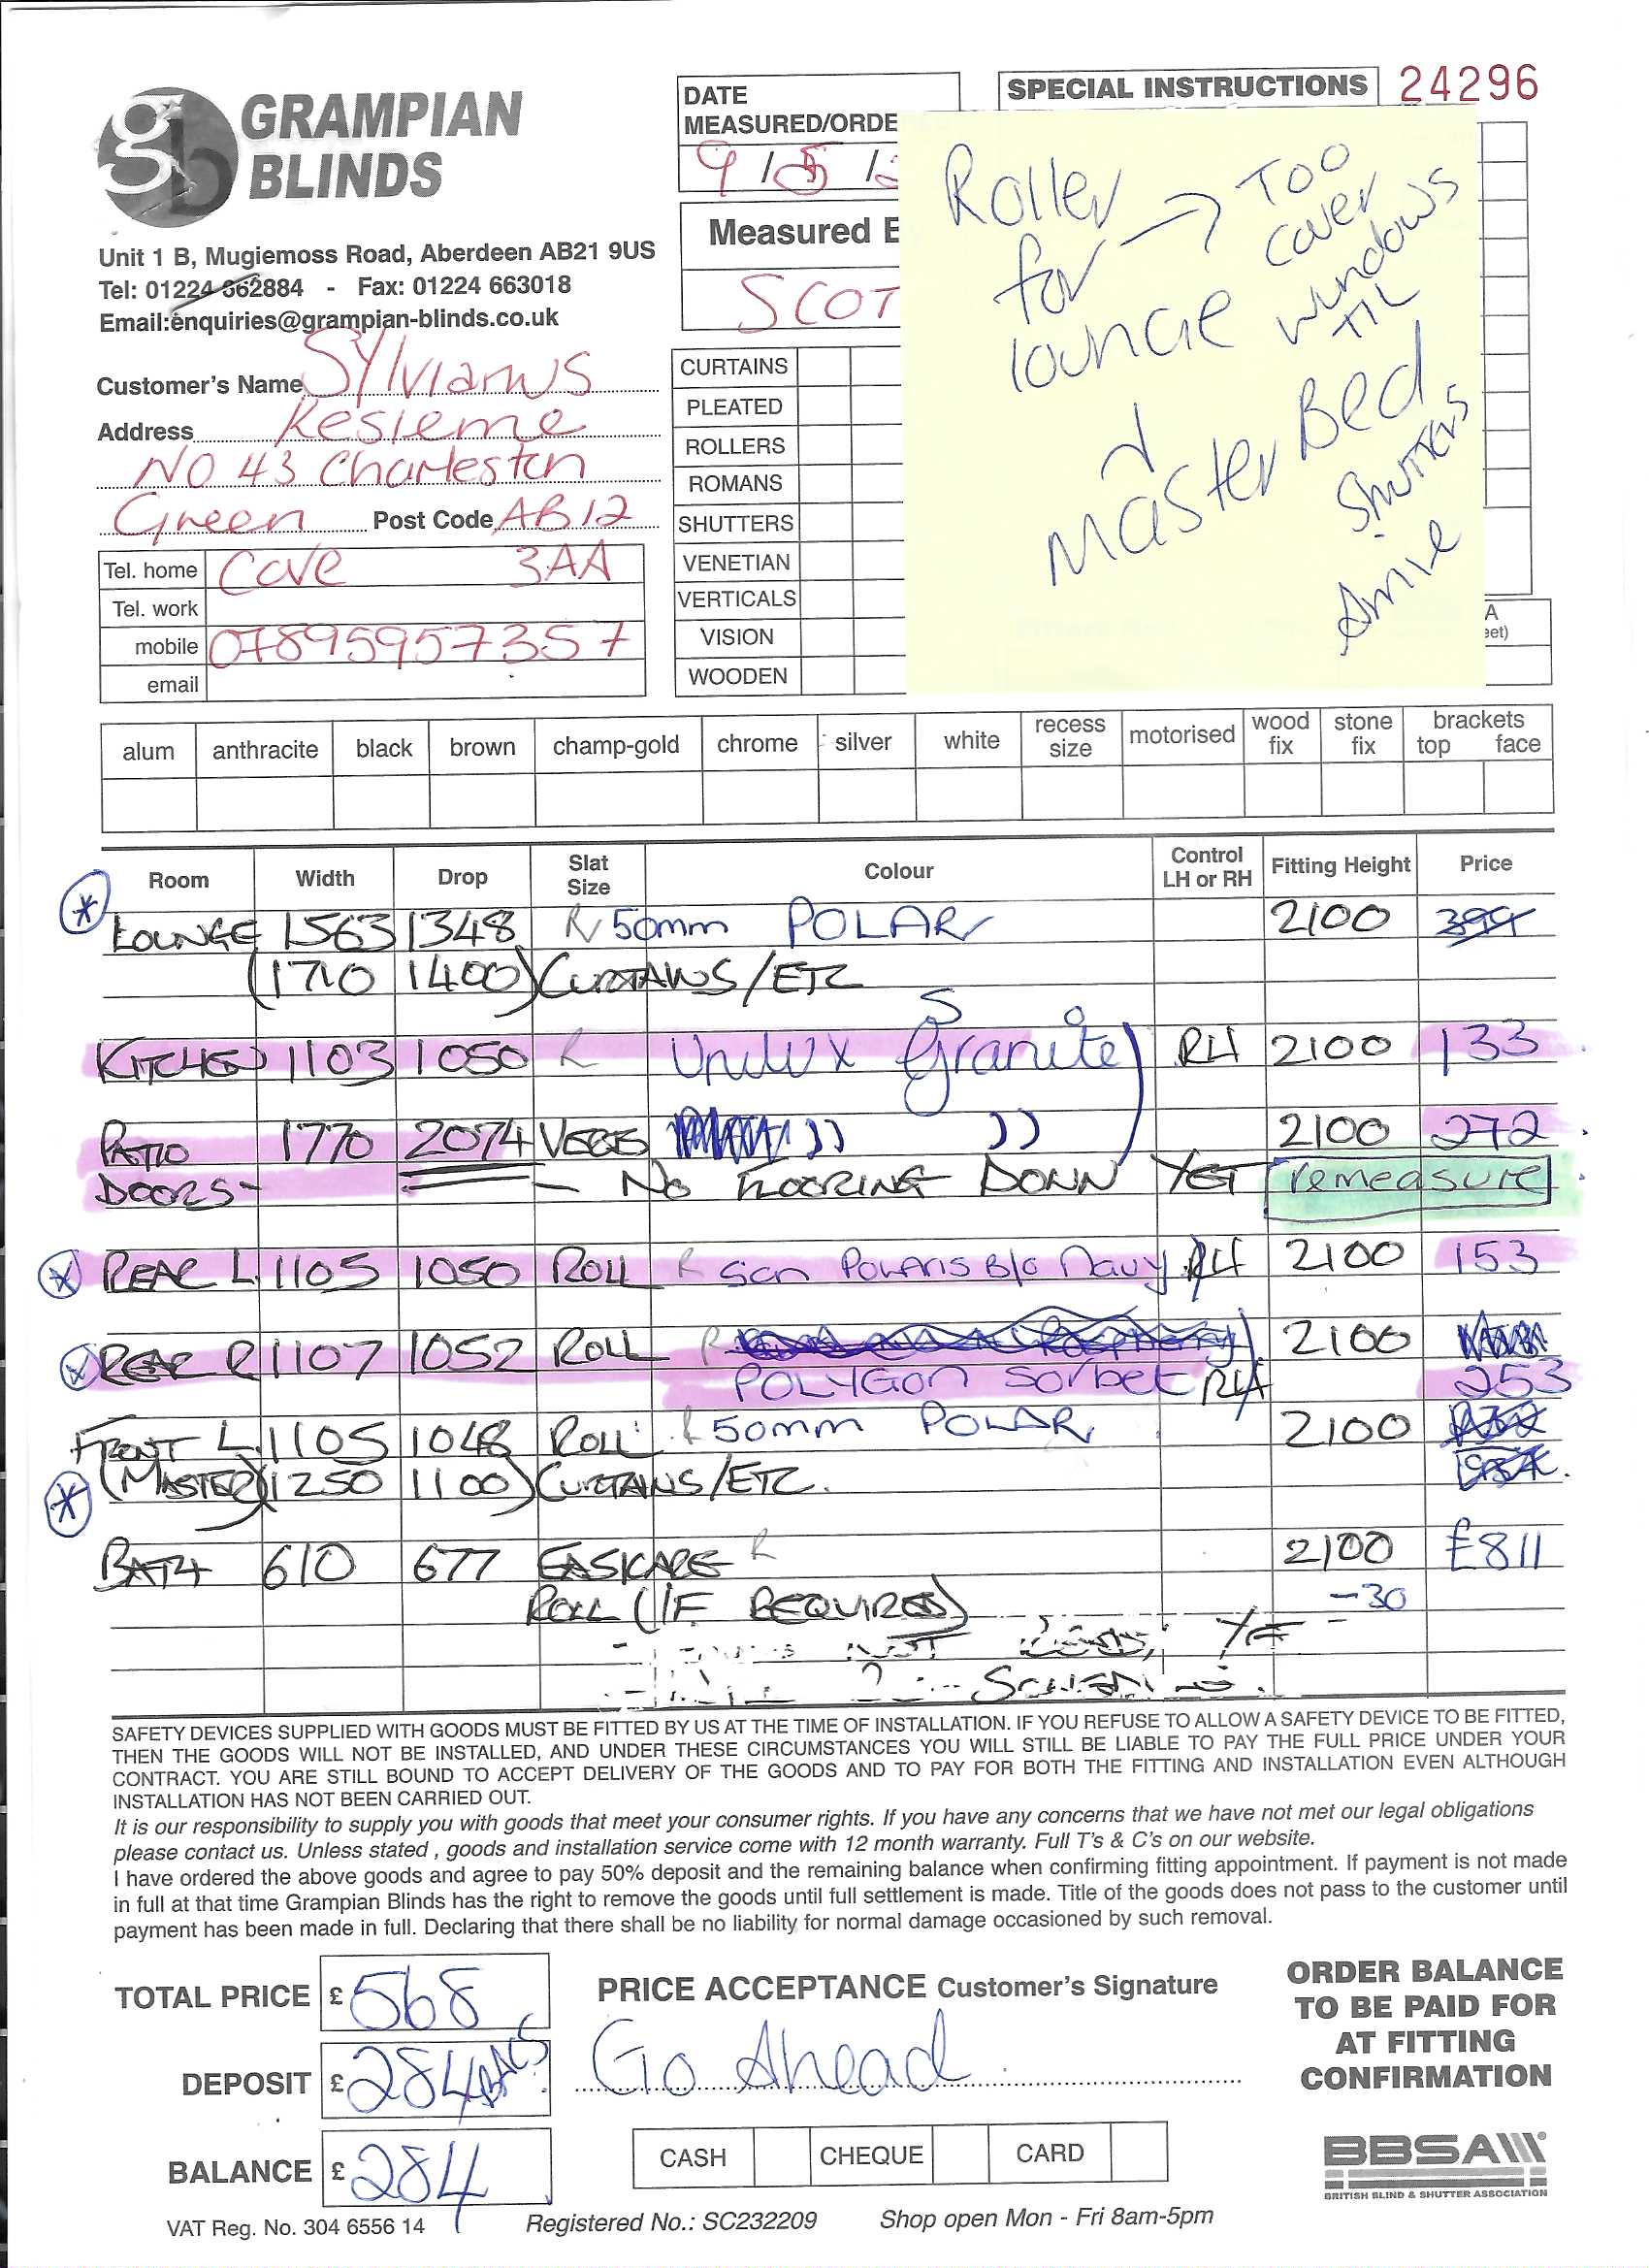 GRAMPIAN
BLINDS
Unit 1 B, Mugiemoss Road, Aberdeen AB21 9US
Tel: 01224 662884 - Fax: 01224 663018
Email:enquiries@grampian-blinds.co.uk
Customer's Name Sylvianus
Address Kesieme
NO 43 Charleston
Green Post Code AB12
Tel. home Cove 3AA
Tel. work
mobile 07895957357
email
DATE
MEASURED/ORDE
9/5/2
Measured B
SCOT
CURTAINS
PLEATED
ROLLERS
ROMANS
SHUTTERS
VENETIAN
VERTICALS
VISION
WOODEN
SPECIAL INSTRUCTIONS 24296
Roller
for → TOO
lounge cover
windows
TIL
Master Bed
Shutters
Arrive
A
eet)
alum anthracite black brown champ-gold chrome silver white recess size motorised wood fix stone fix brackets top face
Room Width Drop Slat Size Colour Control LH or RH Fitting Height Price
* LOUNGE 1563 1348 R 50mm POLAR 2100 399
(1710 1400) CURTAINS/ETC
KITCHEN 1103 1050 R Unilux Granite RH 2100 133
S
PATIO 1770 2074 VEGES )) )) 2100 272
DOORS - - NO FLOORING DOWN YET remeasure
* REAR L. 1105 1050 ROLL R scn Polaris B/o Navy RH 2100 153
* REAR R 1107 1052 ROLL R 2100
POLYGON Sorbet RH 253
FRONT L. 1105 1048 ROLL R 50mm POLAR 2100
* (MASTER) (1250 1100) CURTAINS/ETC.
BATH 610 677 EASICARE R 2100 £811
ROLL (IF REQUIRED) -30
NOT
SAFETY DEVICES SUPPLIED WITH GOODS MUST BE FITTED BY US AT THE TIME OF INSTALLATION. IF YOU REFUSE TO ALLOW A SAFETY DEVICE TO BE FITTED,
THEN THE GOODS WILL NOT BE INSTALLED, AND UNDER THESE CIRCUMSTANCES YOU WILL STILL BE LIABLE TO PAY THE FULL PRICE UNDER YOUR
CONTRACT. YOU ARE STILL BOUND TO ACCEPT DELIVERY OF THE GOODS AND TO PAY FOR BOTH THE FITTING AND INSTALLATION EVEN ALTHOUGH
INSTALLATION HAS NOT BEEN CARRIED OUT.
It is our responsibility to supply you with goods that meet your consumer rights. If you have any concerns that we have not met our legal obligations
please contact us. Unless stated , goods and installation service come with 12 month warranty. Full T's & C's on our website.
I have ordered the above goods and agree to pay 50% deposit and the remaining balance when confirming fitting appointment. If payment is not made
in full at that time Grampian Blinds has the right to remove the goods until full settlement is made. Title of the goods does not pass to the customer until
payment has been made in full. Declaring that there shall be no liability for normal damage occasioned by such removal.
TOTAL PRICE £ 568
DEPOSIT £ 284 BACS
BALANCE £ 284
PRICE ACCEPTANCE Customer's Signature
Go Ahead
CASH CHEQUE CARD
ORDER BALANCE
TO BE PAID FOR
AT FITTING
CONFIRMATION
BBSA
BRITISH BLIND & SHUTTER ASSOCIATION
VAT Reg. No. 304 6556 14 Registered No.: SC232209 Shop open Mon - Fri 8am-5pm